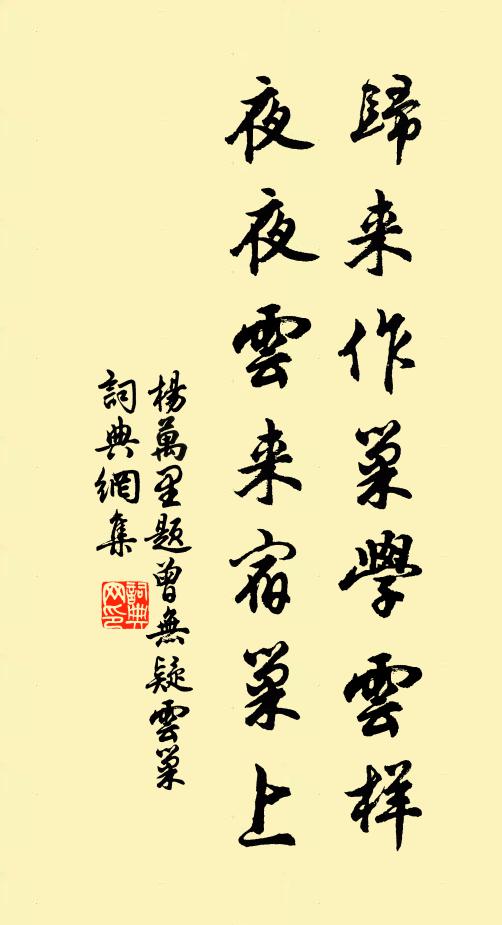 歸来作巢學雲样
夜夜雲来宿巢上
楊萬里題曾無疑雲巢
詞典網集
詞典网印